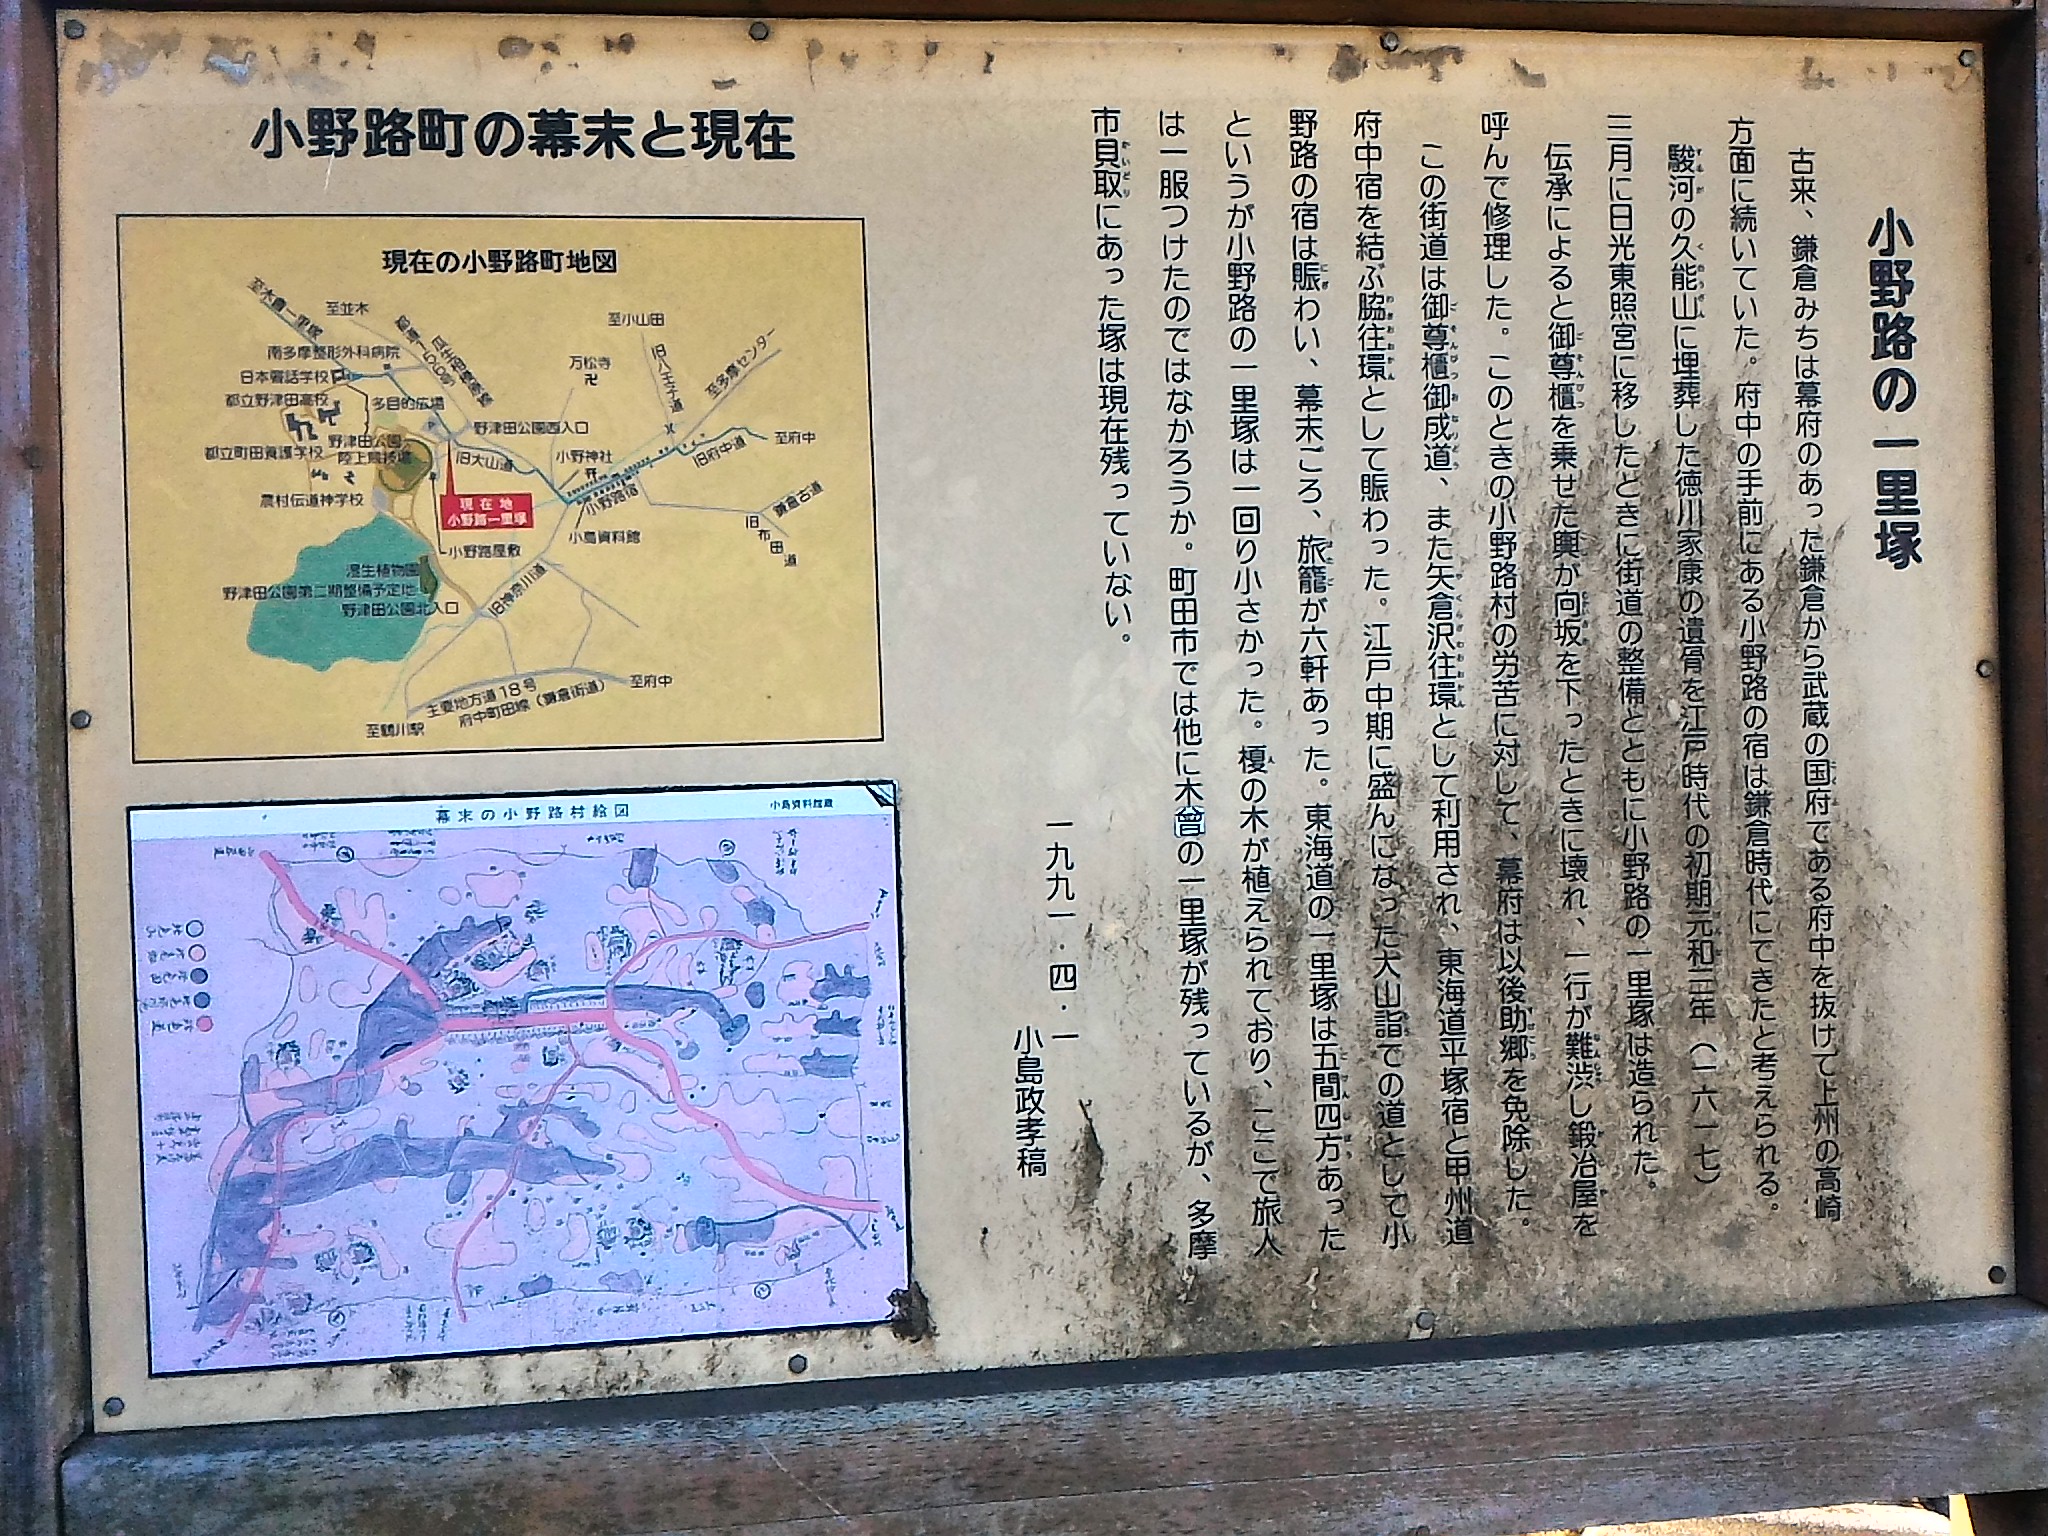 小野路の一里塚
古来、鎌倉みちは幕府のあった鎌倉から武蔵の国府である府中を抜けて上州の高崎
方面に続いていた。府中の手前にある小野路の宿は鎌倉時代にできたと考えられる。
駿河の久能山に埋葬した徳川家康の遺骨を江戸時代の初期元和三年(一六一七)
三月に日光東照宮に移したときに街道の整備とともに小野路の一里塚は造られた。
伝承によると御尊櫃を乗せた輿が向坂を下ったときに壊れ、一行が難渋し鍛冶屋を
呼んで修理した。このときの小野路村の労苦に対して、幕府は以後助郷を免除した。
この街道は御尊櫃御成道、また矢倉沢往環として利用され、東海道平塚宿と甲州道
府中宿を結ぶ脇往環として賑わった。江戸中期に盛んになった大山詣での道として小
野路の宿は賑わい、幕末ごろ、旅籠が六軒あった。東海道の一里塚は五間四方あった
というが小野路の一里塚は一回り小さかった。榎の木が植えられており、ここで旅人
は一服つけたのではなかろうか。町田市では他に木曾の一里塚が残っているが、多摩
市貝取にあった塚は現在残っていない。
一九九一・四・一
小島政孝稿
小野路町の幕末と現在
現在の小野路町地図
至木曽一里塚
至並木
至小山田
南多摩整形外科病院
万松寺
旧八王子道
至多摩センター
日本聾話学校
都立野津田高校
多目的広場
野津田公園西入口
至府中
野津田公園
陸上競技場
都立町田養護学校
旧大山道
小野神社
旧府中道
農村伝道神学校
現在地
小野路一里塚
小野路宿
鎌倉古道
旧布田道
小島資料館
小野路屋敷
湿生植物園
野津田公園第二期整備予定地
野津田公園北入口
旧神奈川道
主要地方道18号
府中町田線(鎌倉街道)
至府中
至鶴川駅
幕末の小野路村絵図
小島資料館蔵